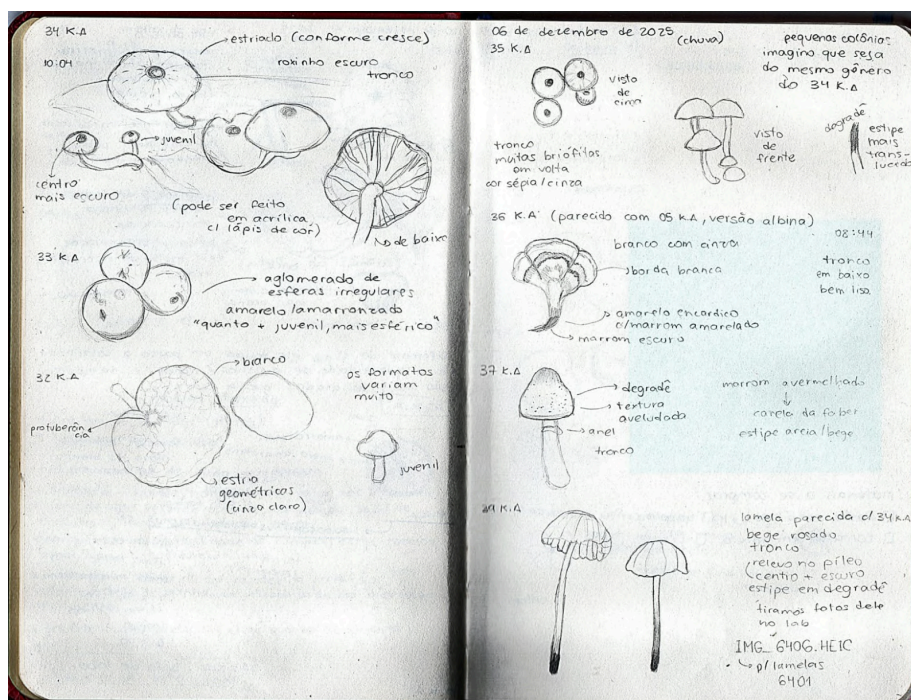 34 K.A
10:04
estriado (conforme cresce)
roxinho escuro
tronco
juvenil
centro
mais escuro
(pode ser feito
em acrílica
c/ lápis de cor)
de baixo
33 K.A
aglomerado de
esferas irregulares
amarelo/amarronzado
"quanto + juvenil, mais esférico"
32 K.A
branco
os formatos
variam
muito
protuberân
cia
juvenil
estria
geométricas
(cinza claro)
06 de dezembro de 2025
(chuva)
35 K.A
pequenas colônias
imagino que seja
do mesmo gênero
do 34 K.A
visto
de
cima
visto
de
frente
degradê
estipe
mais
trans-
lucado
tronco
muitas briófitas
em volta
cor sépia/cinza
36 K.A (parecido com 05 K.A, versão albina)
08:44
branco com cinza
borda branca
tronco
em baixo
bem liso
amarelo encardido
c/marrom amarelado
marrom escuro
37 K.A
degradê
textura
aveludada
anel
tronco
marrom avermelhado
canela da faber
estipe areia/bege
K.A
lamela parecida c/ 34 K.A
bege rosado
tronco
relevo no píleo
centro + escuro
estipe em degradê
tiramos fotos dele
no lab
IMG_6406.HEIC
p/ lamelas
6401